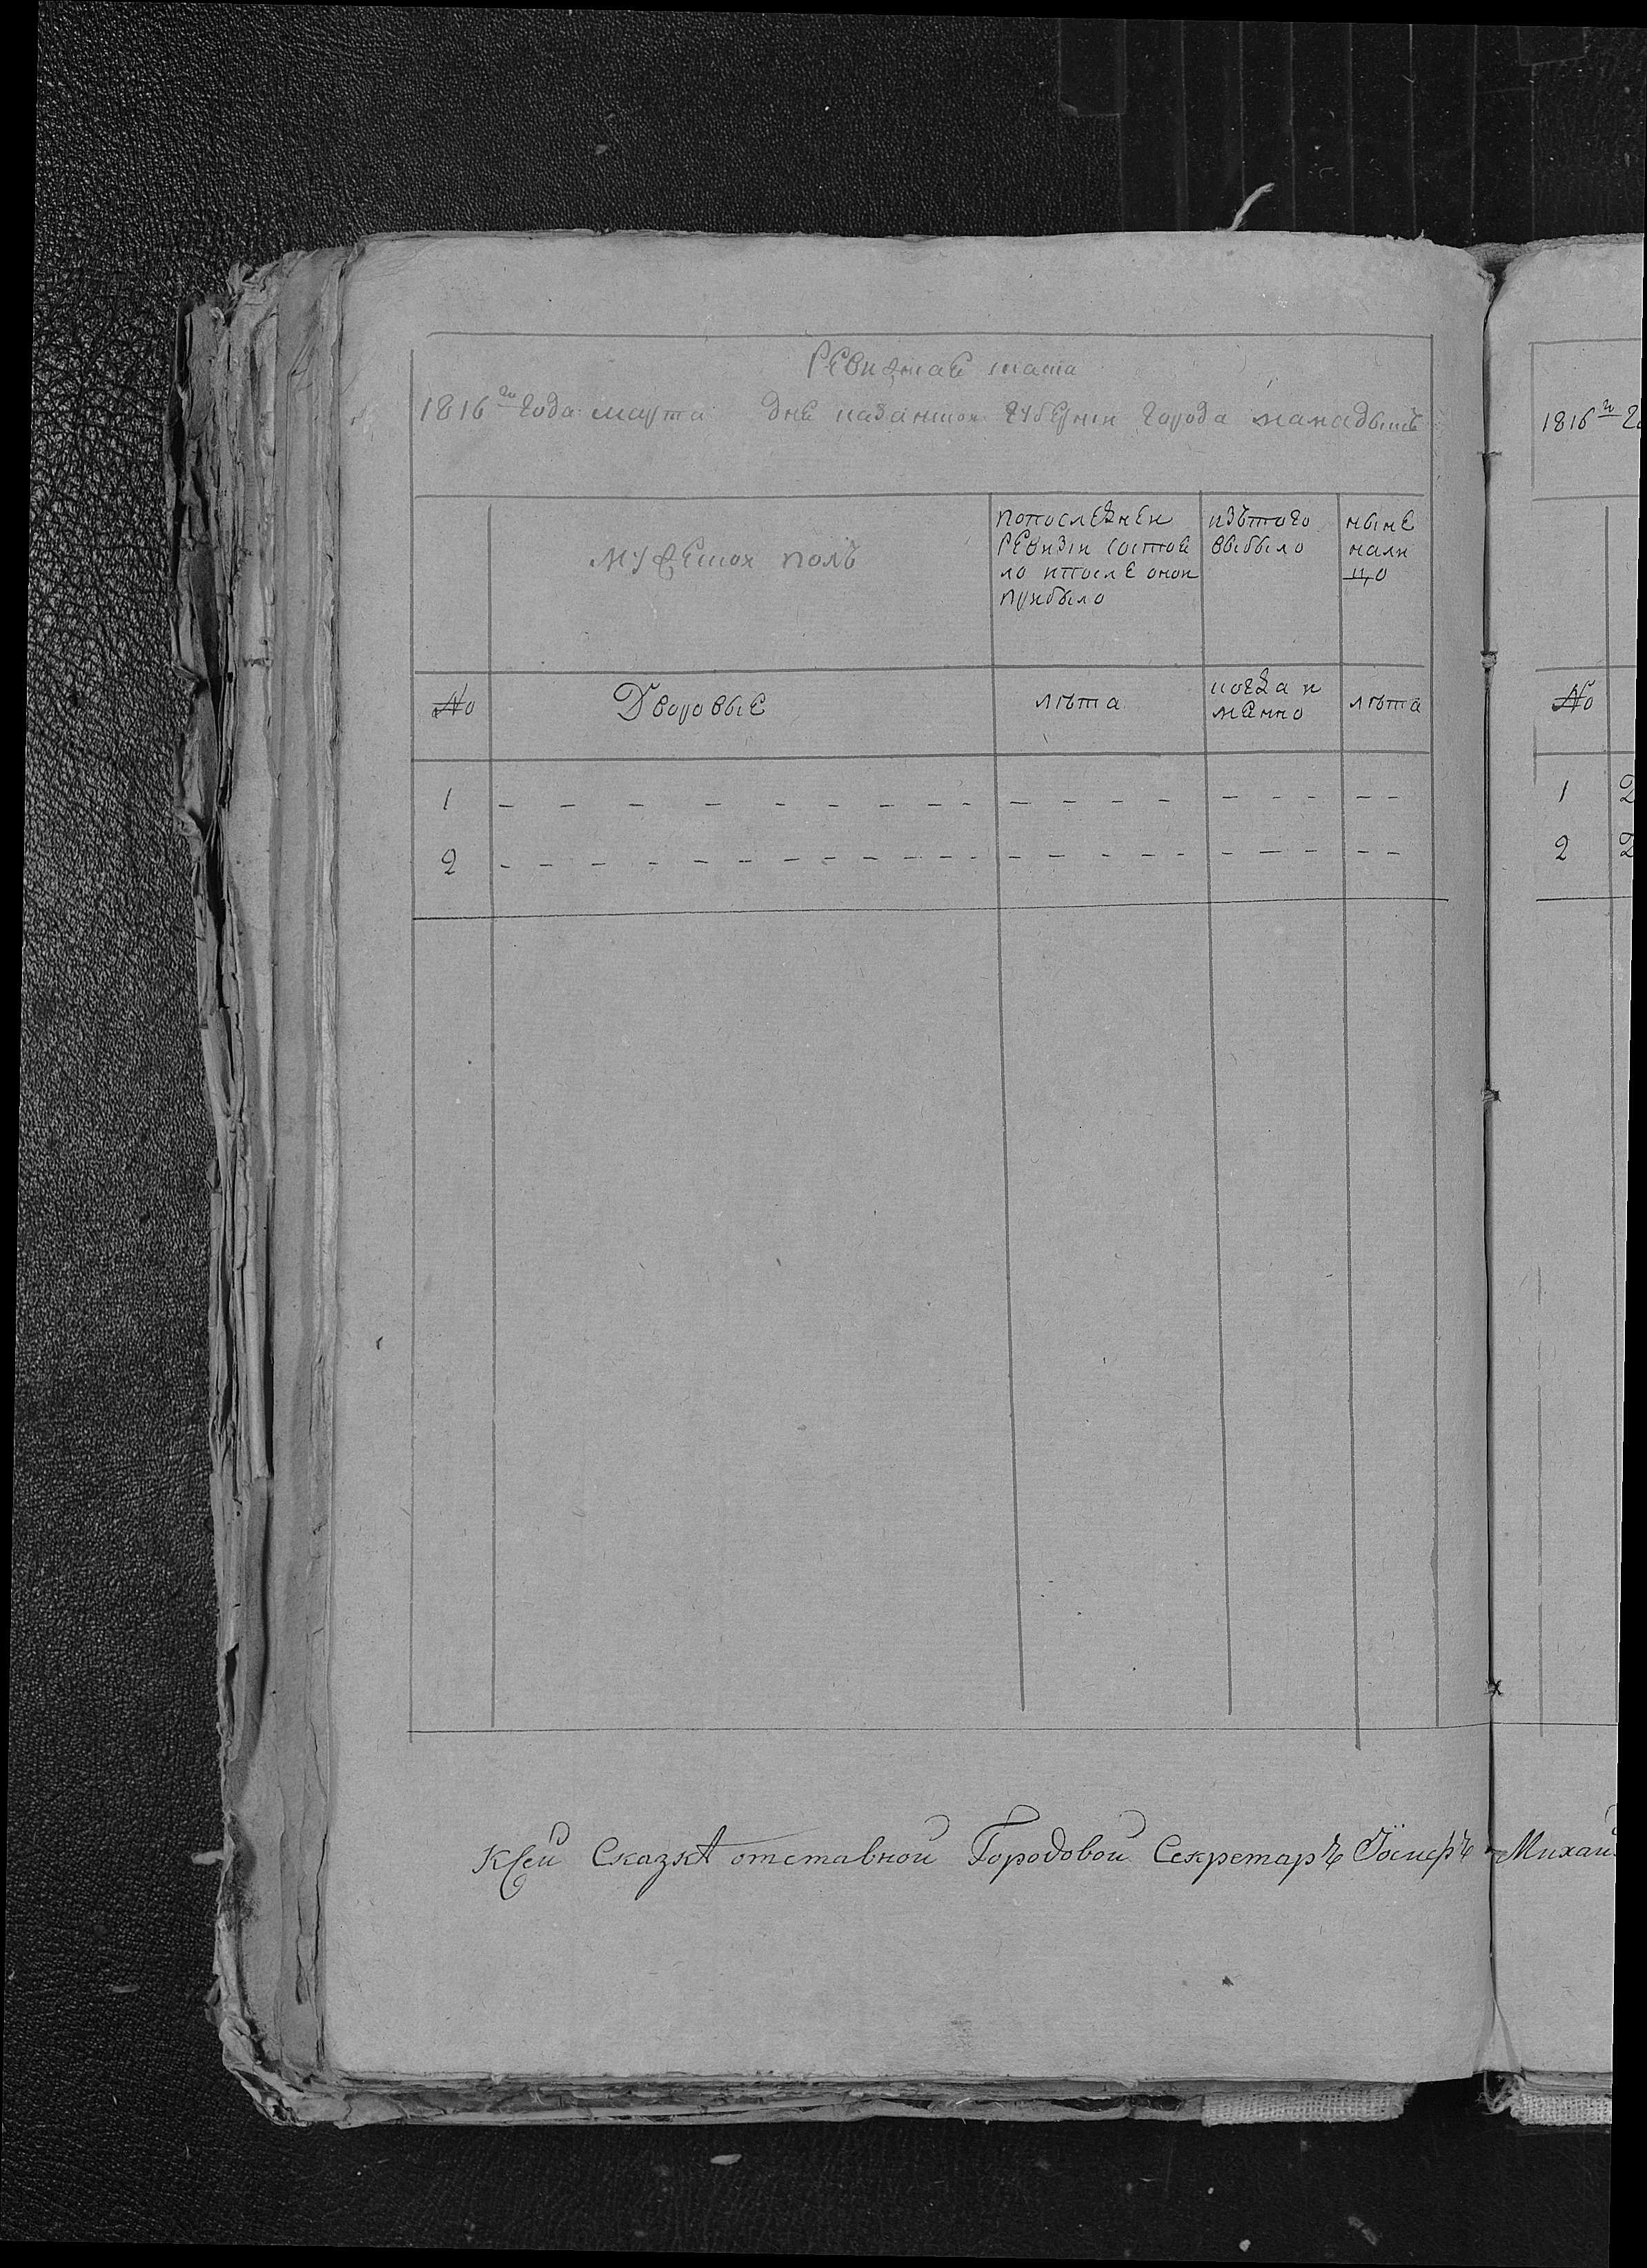 Ревизкае ската
1816го года марта дне казанскои губернiи города мамадыша
мужескои полъ
попослеҍднеи
ревизiи состое
ло ипосле онои
прибыло
изътого
выбыло
ныне
нали
цо
№ Дворовые лѣта
когда и
менно
лѣта
1
2
Ксей Сказкѣ отставной Городовой Секретарь Iосифъ Михай
1816го го
№
1 2
2 2